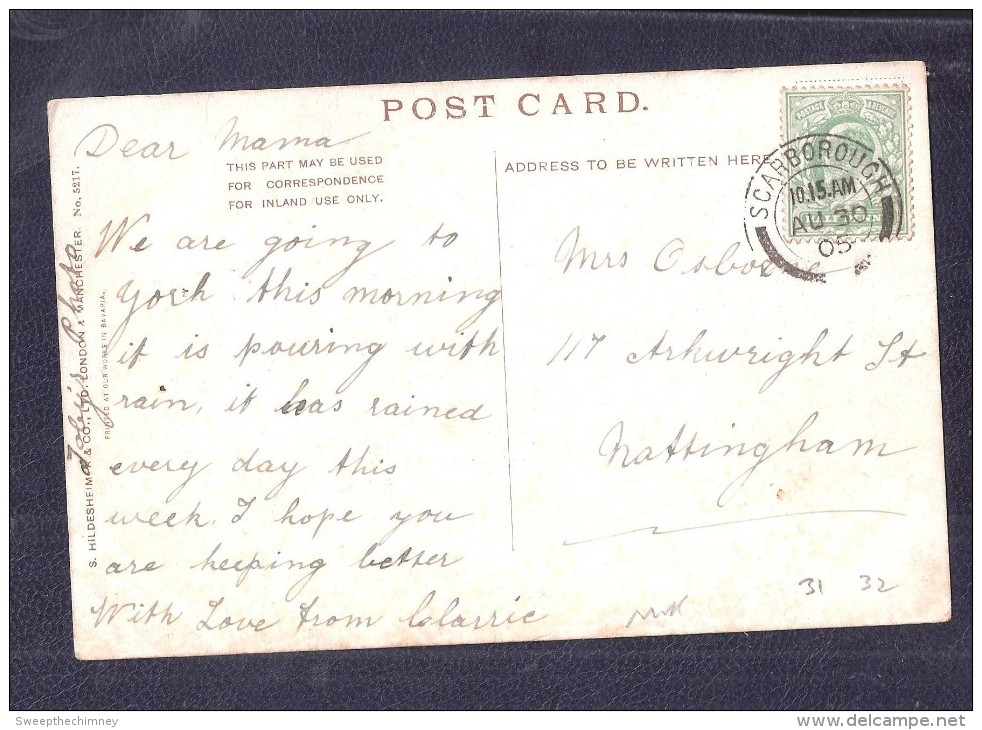 POST CARD.
THIS PART MAY BE USED
FOR CORRESPONDENCE
FOR INLAND USE ONLY.
ADDRESS TO BE WRITTEN HERE.
POSTAGE & REVENUE
SCARBOROUGH
10.15.AM
AU 30
05
Dear Mama
We are going to
York this morning
it is pouring with
rain, it has rained
every day this
week. I hope you
are keeping better
With Love from Clarrie
Mrs Osborne
117 Arkwright St
Nottingham
31 32
S. HILDESHEIMER & CO., LTD. LONDON & MANCHESTER. No. 5217.
PRINTED AT OUR WORKS IN BAVARIA.
Photo
Sweepthechimney
www.delcampe.net